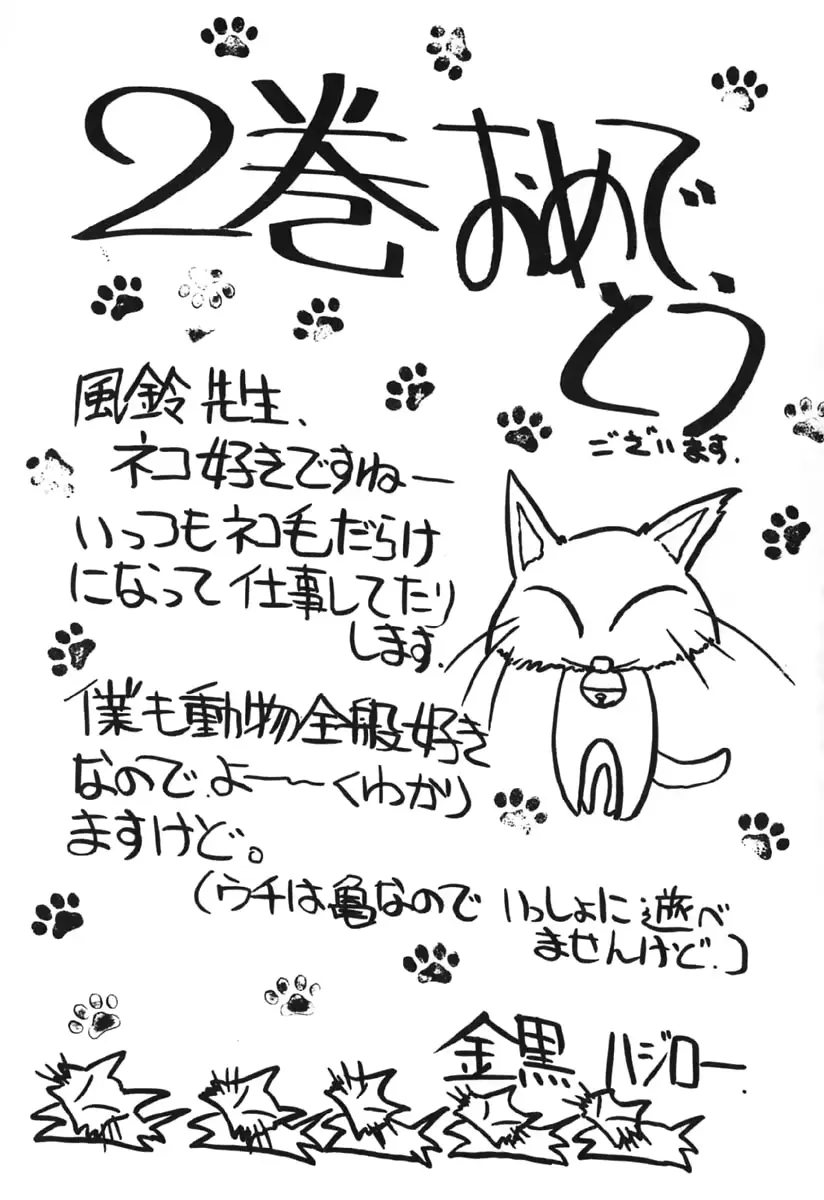 2巻おめで、
とう
ございます.
風鈴先生、
ネコ好きですねー
いっつもネコ毛だらけ
になって仕事してたり
します.
僕も動物全般好き
なので.よ〜〜くわかり
ますけど。
(ウチは亀なので いっしょに遊べ
ませんけど.)
金黒 ハジロー.